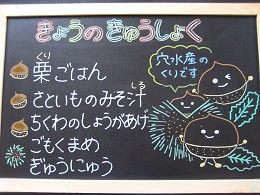 きょうのきゅうしょく
栗ごはん
くり
さといものみそ汁
しる
ちくわのしょうがあげ
ごもくまめ
ぎゅうにゅう
穴水産の
くりです